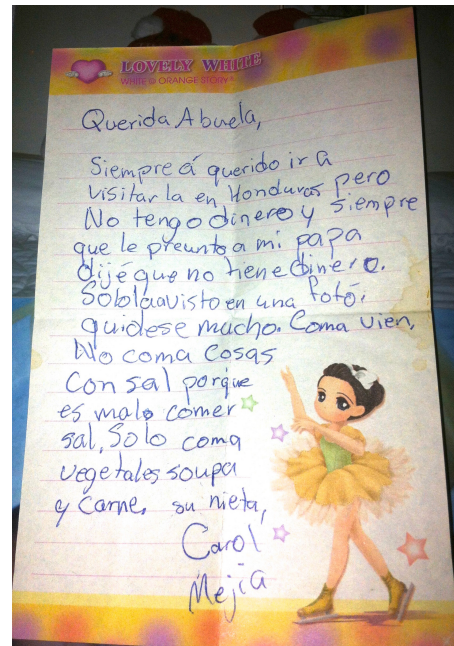 LOVELY WHITE
WHITE & ORANGE STORY
Querida Abuela,
Siempre á querido ir a
visitar la en Honduras pero
No tengo dinero y siempre
que le preunto a mi papa
dijé que no tiene dinero.
Sololaavisto en una fotó¡
quidese mucho. Coma vien,
No coma cosas
Con sal porque
es malo comer
sal, Solo coma
vegetales soupa
y Carne, su nieta,
Carol
Mejia